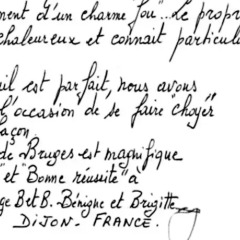 ment d'un charme fou"...Le propr
chaleureux et connait particul
uil est parfait, nous avons
l'occasion de se faire "choyer"
açon.
de Bruges est magnifique
" et "Bonne réussite" à
ge B et B. Bénigne et Brigitte
DIJON - FRANCE.